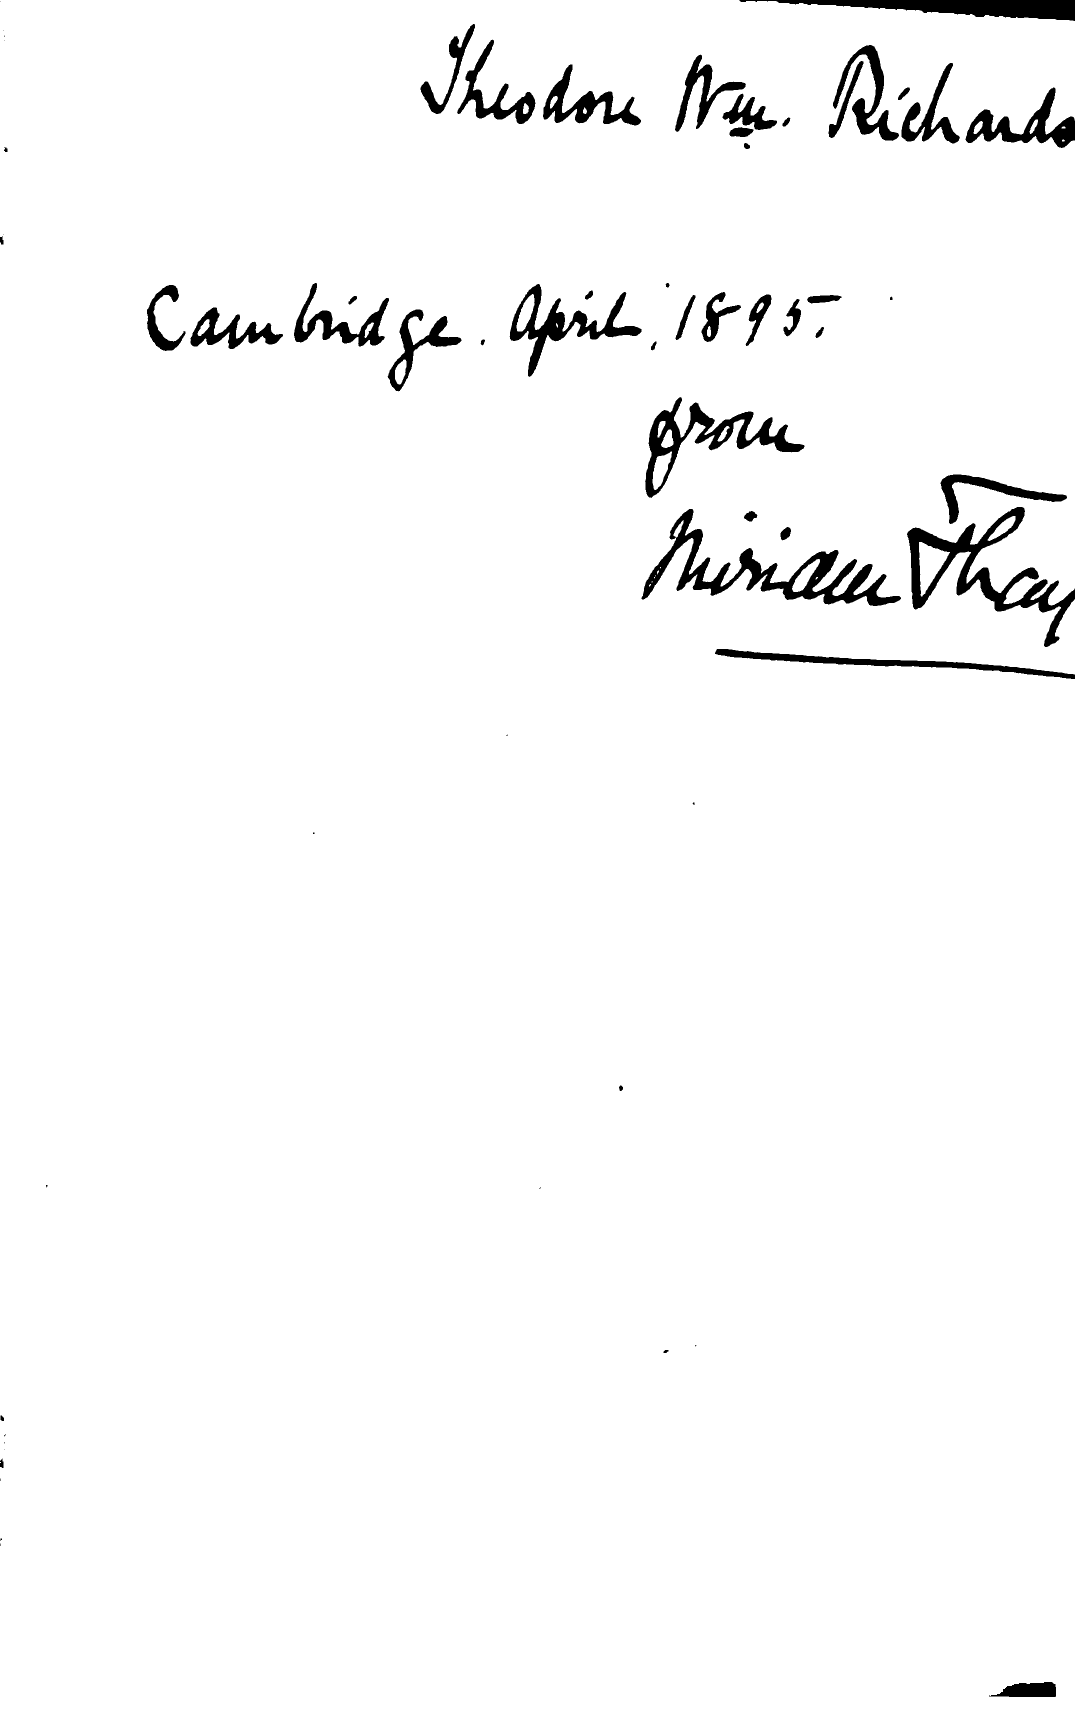 Theodore Wm. Richards
Cambridge. April, 1895.
from
Miriam Thay